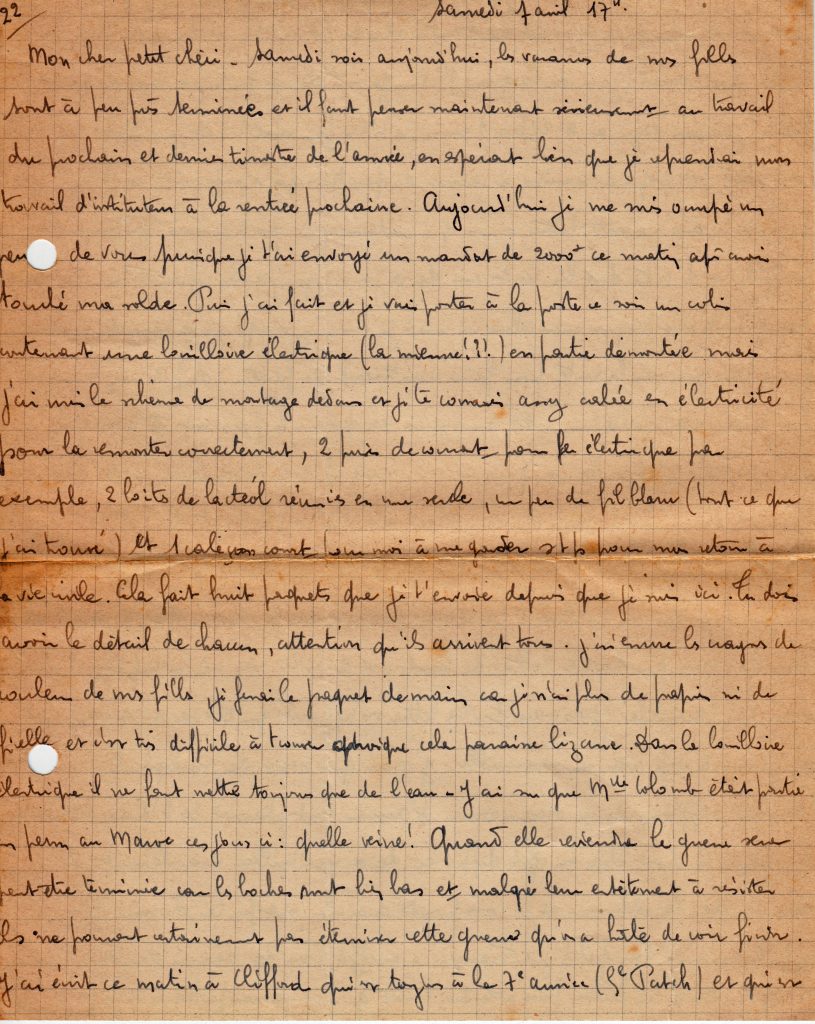 22
Samedi 7 avril 17h.
Mon cher petit chéri - Samedi soir aujourd'hui, les vacances de nos filles
sont à peu près terminées et il faut penser maintenant sérieusement au travail
du prochain et dernier trimestre de l'année, en espérant bien que je reprendrai mon
travail d'instituteur à la rentrée prochaine. Aujourd'hui je me suis occupé un
peu de vous puisque je t'ai envoyé un mandat de 2000 ce matin après avoir
touché ma solde. Puis j'ai fait et je vais porter à la poste ce soir un colis
contenant une bouilloire électrique (la mienne!?!) en partie démontée mais
j'ai mis le schéma de montage dedans et je te connais assez calée en électricité
pour la remonter correctement, 2 prises de courant pour fer électrique par
exemple, 2 boîtes de lactéol réunies en une seule, un peu de fil blanc (tout ce que
j'ai trouvé) et 1 caleçon court pour moi à me garder stp pour mon retour à
la vie civile. Cela fait huit paquets que je t'envoie depuis que je suis ici. Tu dois
avoir le détail de chacun, attention qu'ils arrivent tous. J'ai encore les crayons de
couleur de nos filles, je ferai le paquet demain car je n'ai plus de papier ni de
ficelle et c'est très difficile à trouver quoique cela paraisse bizarre. Dans la bouilloire
électrique il ne faut mettre toujours que de l'eau - J'ai su que Mlle Colomb était partie
en perm au Maroc ces jours ci : quelle veine! Quand elle reviendra la guerre sera
peut-être terminée car les boches sont bien bas et malgré leur entêtement à résister
ils ne pourront certainement pas éterniser cette guerre qu'on a hâte de voir finir.
J'ai écrit ce matin à Clifford qui est toujours à la 7e armée (Gl Patch) et qui est